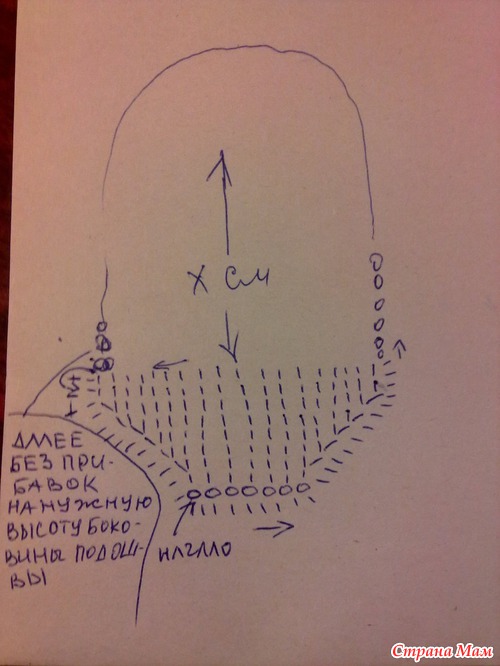 Х СМ
ДАЛЕЕ
БЕЗ ПРИ-
БАВОК
НА НУЖНУЮ
ВЫСОТУ БОКО-
ВИНЫ ПОДОШ-
ВЫ
НАЧАЛО
Страна Мам